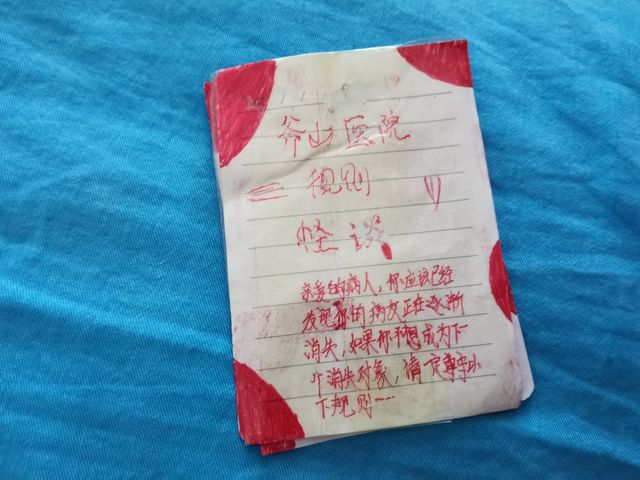 斧山医院
规则
怪谈
亲爱的病人,你应该已经
发现你的病友正在逐渐
消失,如果你不想成为下
个消失对象,请一定遵守以
下规则……